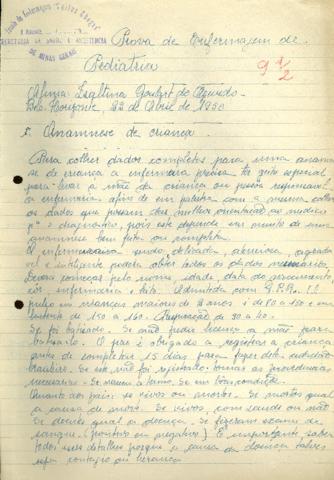 Escola de Enfermagem "Carlos Chagas"
SECRETARIA DA SAUDE E ASSISTENCIA
DE MINAS GERAIS
Prova de Enfermagem de
Pediatria
9 1/2
Aluna: Isaltina Goulart de Azevedo
Belo Horizonte, 22 de Abril de 1950
Anamnese de criança.
Para colher dados completos para uma anamne-
se de criança a enfermeira precisa ter jeito especial
para levar a mãe da criança ou pessoa responsavel
a enfermaria afim de em palestra com a mesma colher
os dados que possam dar melhor orientação ao medico
p" o diagnostico, pois este depende em muito de uma
anamnese bem feita ou completa.
A enfermeira sendo delicada, atenciosa, agrada-
vel e inteligente poderá obter todos os dados necessarios.
Deverá começar pelo nome, idade, data do nascimento,
côr, enfermaria e leito. Admitida com T.P.R.
pulso em crianças maiores de anos é de 80 a 120 e em
lactente de 120 a 160. Respiração de 30 a 40.
Se foi batisado. Se não pedir licença a mãe para
batisa-lo. O pai é obrigado a registrar a criança
antes de completar 15 dias para fazer dela cidadão
brasileiro. Se este não foi registado tomar as providencias
necessarias. Se nasceu a termo. Se em boas condições.
Quanto aos pais: se vivos ou mortos. Se mortos qual
a causa da morte. Se vivos, com saude ou não.
Se doentes qual a doença. Se fizeram exame de
sangue. (positivos ou negativos) É importante saber
todos esses detalhes porque a causa da doença talvez
seja contagio ou herança